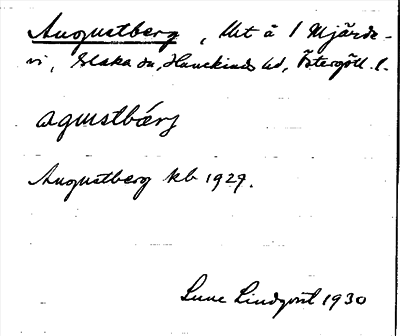 Augustberg, lht å 1 Mjärde-
vi, Slaka sn, Hanekinds hd, Östergötl. l.
agustbárj
Augustberg kb 1929.
Sune Lindqvist 1930